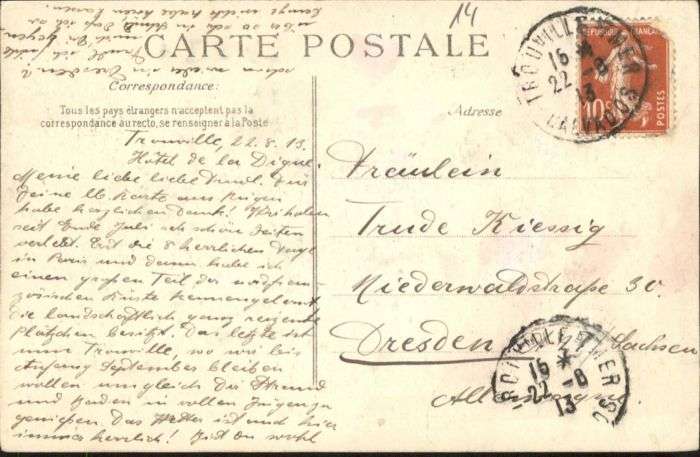 14
CARTE POSTALE
Correspondance:
Tous les pays étrangers n'acceptent pas la
correspondance au recto, se renseigner à la Poste
Adresse
TROUVILLE
15
22 -8
13
CALVADOS
RÉPUBLIQUE FRANÇAISE
10c
POSTES
Trouville, 22.8.13.
Hôtel de la Digue.
Meine liebe liebe Trudl. Für
Deine lb. Karte aus Rügen
habe herzlichen Dank!
seit Ende Juli sehr schöne Zeiten
verlebt. Erst die 8 herrlichen Tage
in Paris und dann habe ich
einen großen Teil der nordfran-
zösischen Küste kennengelernt
die landschaftlich ganz reizende
Plätzchen besitzt. Das letzte ist
nun Trouville, wo wir bis
Anfang September bleiben
wollen um gleich die Strand
und Baden in vollen Zügen zu
genießen. Das Wetter ist auch hier
immer herrlich! Bist Du wohl
schon wieder in Dresden?
Fräulein
Trude Kiessig
Niederwaldstraße 30.
Dresden
Sachsen
Allemagne
TROUVILLE S MER
15 *
22 -8
13